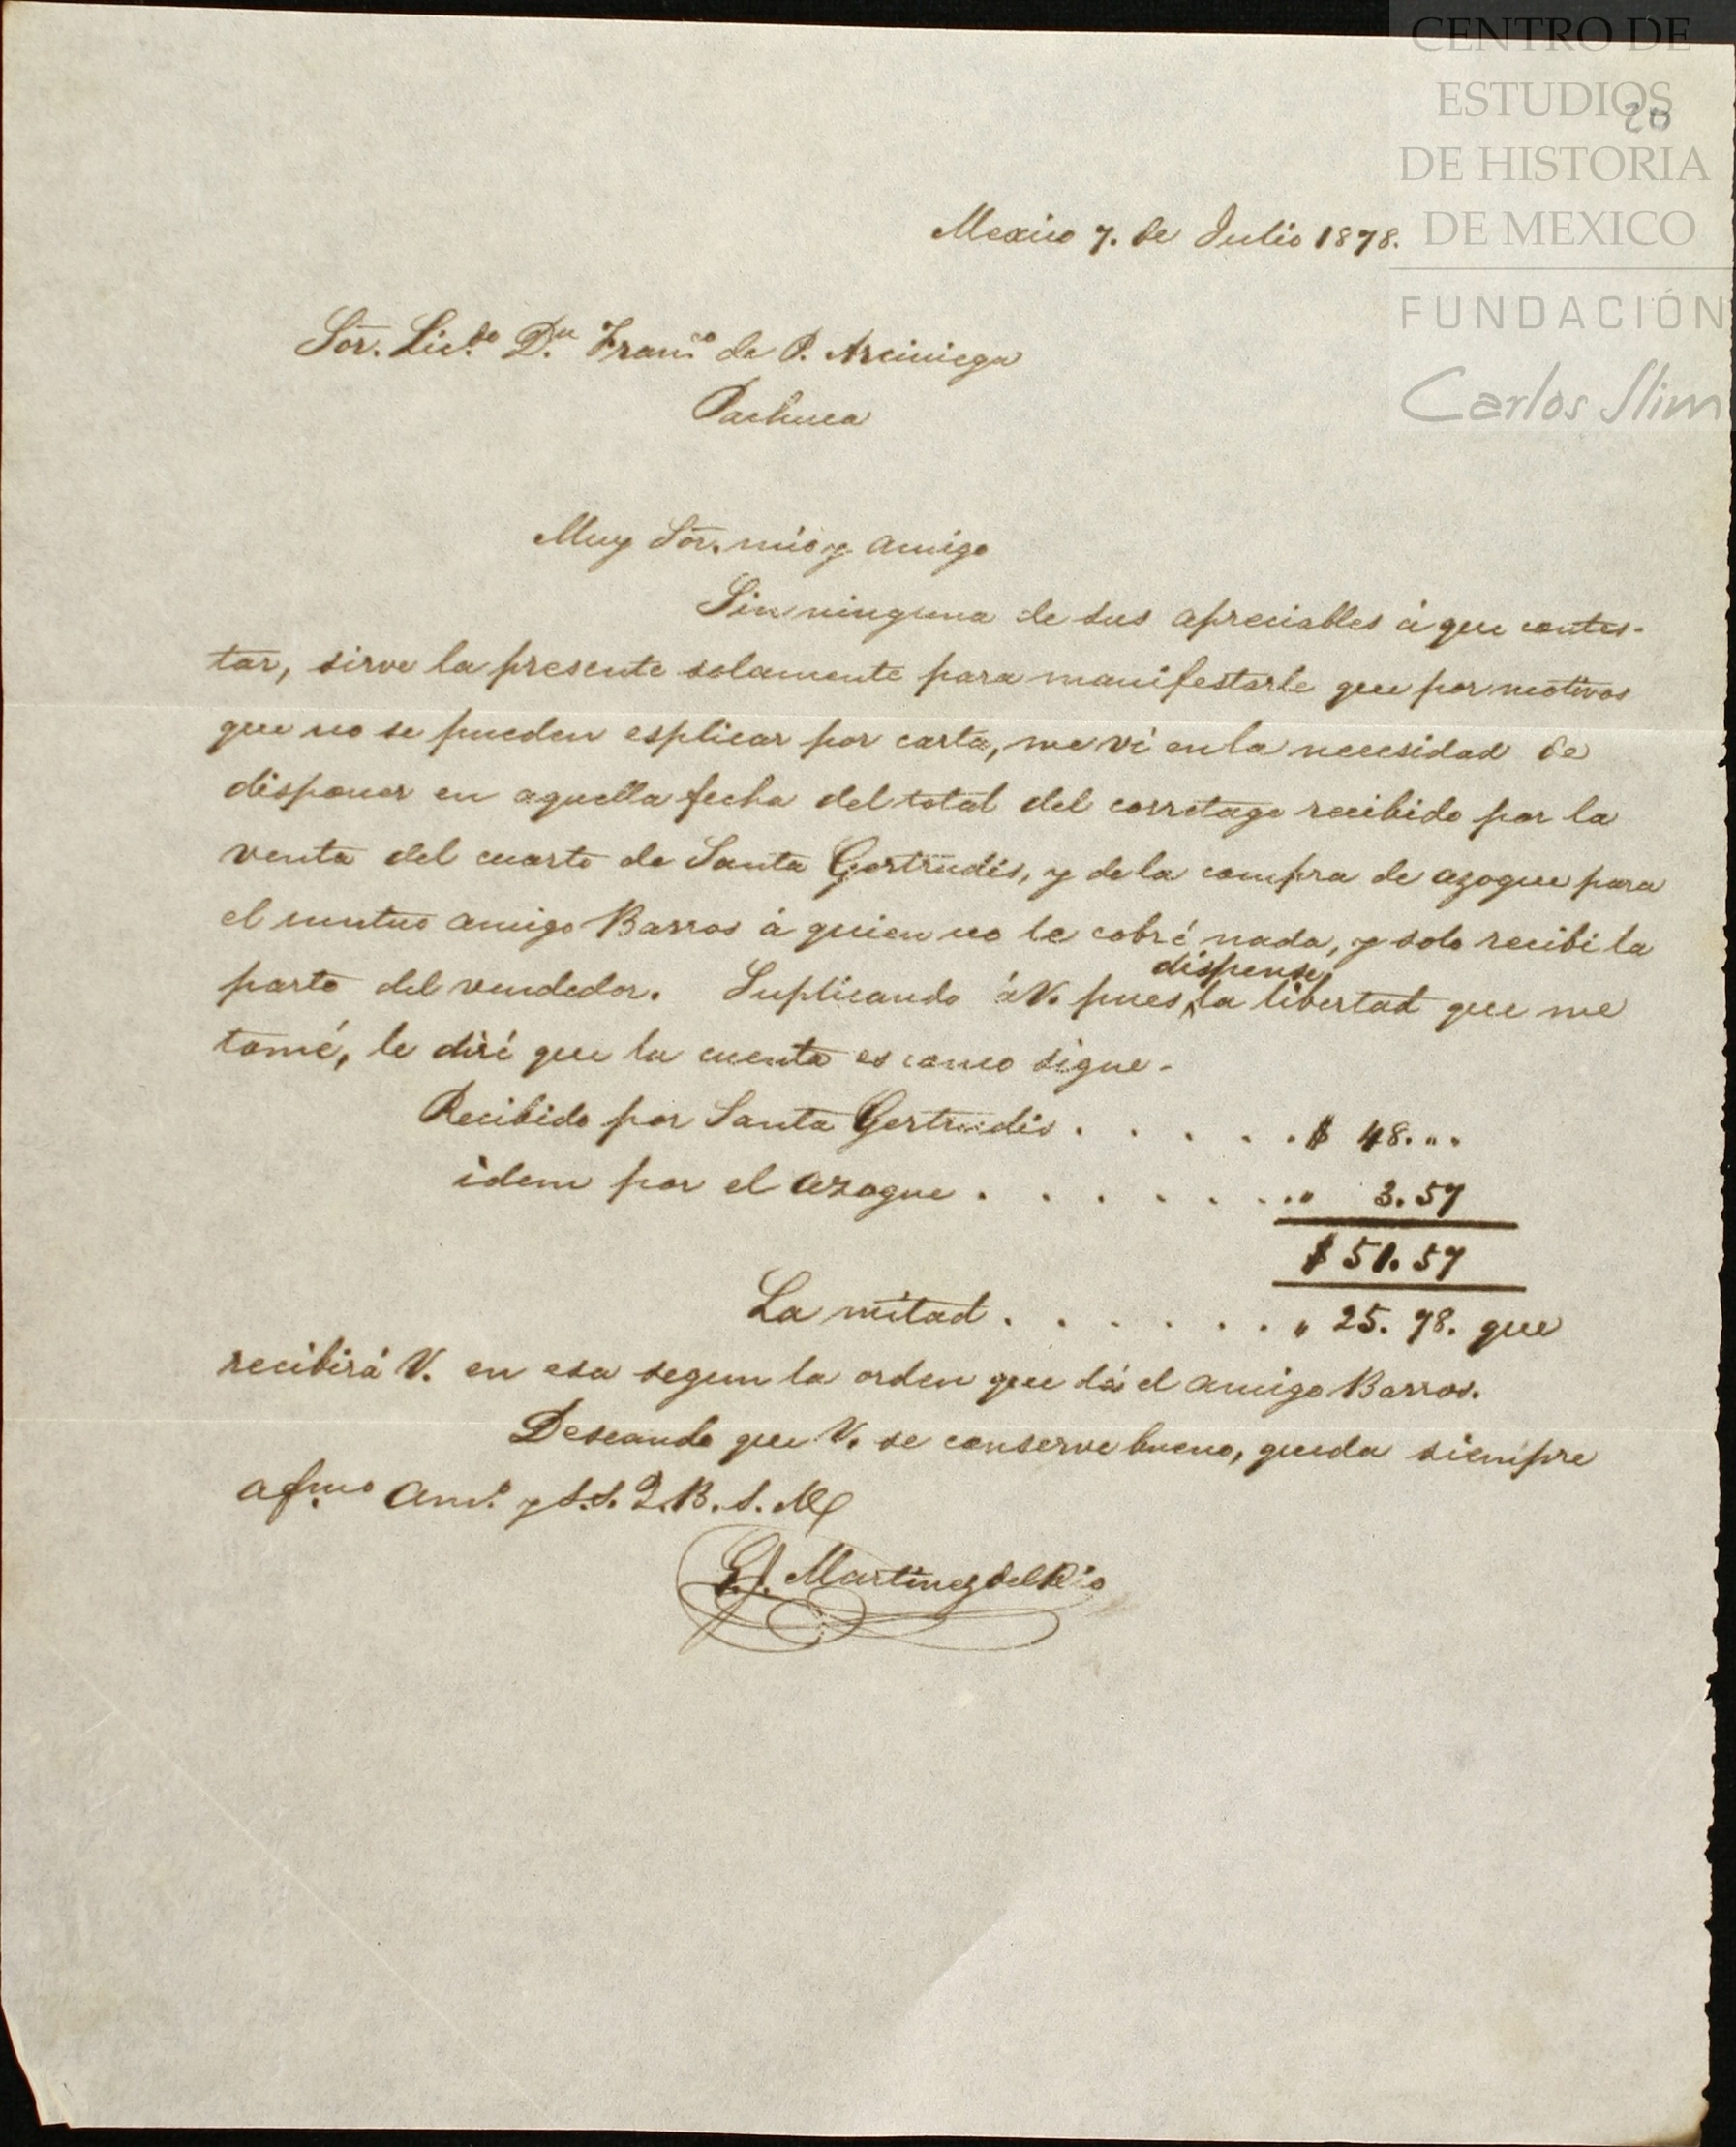 CENTRO DE
ESTUDIOS
20
DE HISTORIA
DE MEXICO
FUNDACIÓN
Carlos Slim
Mexico 7. de Julio 1878.
Sōr. Lic.do D.n Fran.co de P. Arciniega
Pachuca
Muy Sōr. mio y amigo
Sin ninguna de sus apreciables á que contes-
tar, sirve la presente solamente para manifestarle que por motivos
que no se pueden esplicar por carta, me ví en la necesidad de
disponer en aquella fecha del total del corretage recibido por la
venta del cuarto de Santa Gertrudis, y de la compra de azogue para
el mutuo amigo Barros á quien no le cobré nada, y solo recibi la
dispense
parte del vendedor. Suplicando á V. pues, la libertad que me
tomé, le diré que la cuenta es como sigue.
Recibido por Santa Gertrudis . . . . . . $ 48. „ „
idem por el azogue . . . . . . . . „ 3. 57
$ 51. 57
La mitad . . . . . . „ 25. 78. que
recibirá V. en esa segun la orden que dá el amigo Barros.
Deseando que V. se conserve bueno, queda siempre
afmo am.o y S. S. Q. B. S. M
G. J. Martinez del Rio